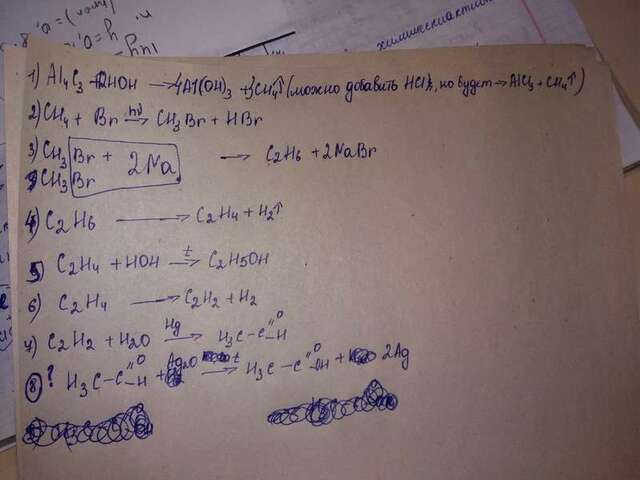 химическиактив
1) Al4C3 + 12HOH → 4Al(OH)3 + 3CH4↑ (можно добавить HCl, но будет → AlCl3 + CH4↑)
2) CH4 + Br hν→ CH3Br + HBr
3) CH3 Br + 2Na → C2H6 + 2NaBr
CH3 Br
4) C2H6 → C2H4 + H2↑
5) C2H4 + HOH t→ C2H5OH
6) C2H4 → C2H2 + H2
7) C2H2 + H2O Hg→ H3C-C=O-H
8) ? H3C-C=O-H + Ag2O t→ H3C-C=O-OH + 2Ag